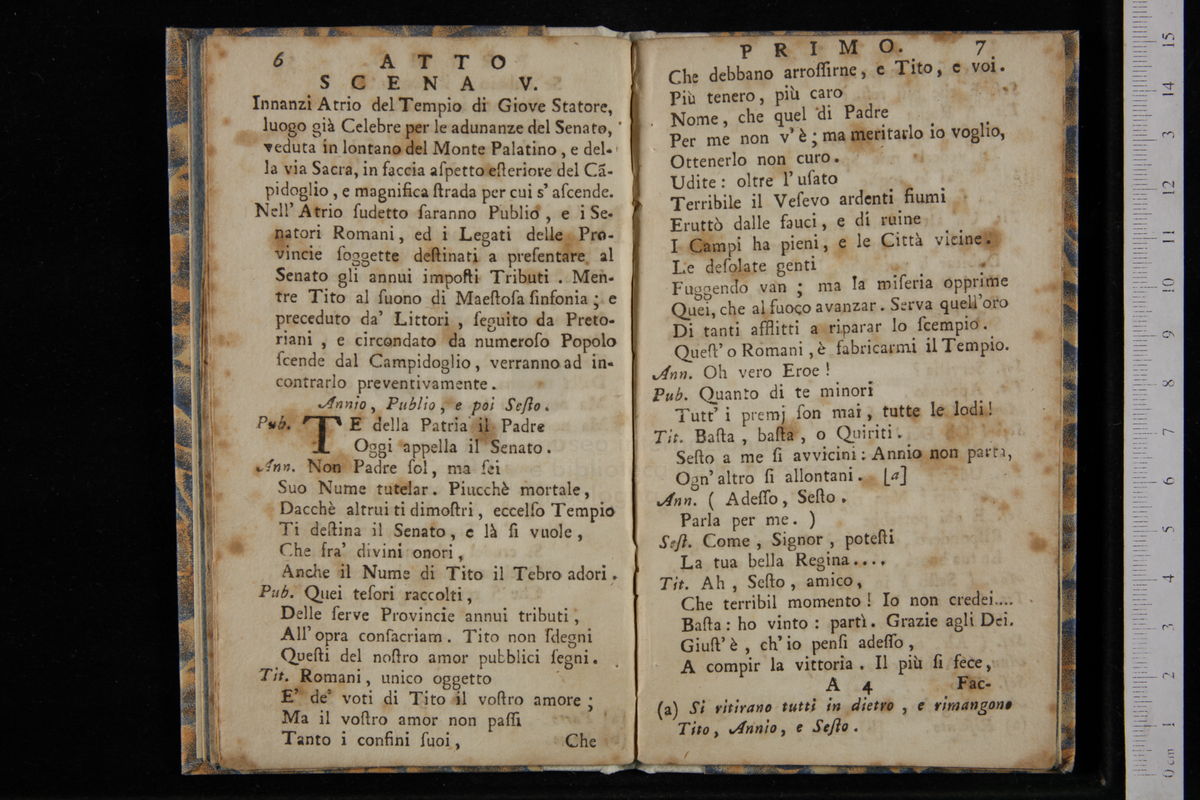 6 ATTO
SCENA V.
Innanzi Atrio del Tempio di Giove Statore,
luogo già Celebre per le adunanze del Senato,
veduta in lontano del Monte Palatino, e del-
la via Sacra, in faccia aſpetto eſteriore del Cã-
pidoglio, e magnifica ſtrada per cui s' aſcende.
Nell' Atrio ſudetto ſaranno Publio, e i Se-
natori Romani, ed i Legati delle Pro-
vincie ſoggette deſtinati a preſentare al
Senato gli annui impoſti Tributi. Men-
tre Tito al ſuono di Maeſtoſa ſinfonia; e
preceduto da' Littori, ſeguito da Preto-
riani, e circondato da numeroſo Popolo
ſcende dal Campidoglio, verranno ad in-
contrarlo preventivamente.
Annio, Publio, e poi Seſto.
Pub. TE della Patria il Padre
Oggi appella il Senato.
Ann. Non Padre ſol, ma ſei
Suo Nume tutelar. Piucchè mortale,
Dacchè altrui ti dimoſtri, eccelſo Tempio
Ti deſtina il Senato, e là ſi vuole,
Che fra' divini onori,
Anche il Nume di Tito il Tebro adori.
Pub. Quei teſori raccolti,
Delle ſerve Provincie annui tributi,
All' opra conſacriam. Tito non ſdegni
Queſti del noſtro amor pubblici ſegni.
Tit. Romani, unico oggetto
E' de' voti di Tito il voſtro amore;
Ma il voſtro amor non paſſi
Tanto i confini ſuoi,
Che
PRIMO. 7
Che debbano arroſſirne, e Tito, e voi.
Più tenero, più caro
Nome, che quel di Padre
Per me non v' è; ma meritarlo io voglio,
Ottenerlo non curo.
Udite: oltre l' uſato
Terribile il Veſevo ardenti fiumi
Eruttò dalle fauci, e di ruine
I Campi ha pieni, e le Città vicine.
Le deſolate genti
Fuggendo van; ma la miſeria opprime
Quei, che al fuoco avanzar. Serva quell' oro
Di tanti afflitti a riparar lo ſcempio.
Queſt' o Romani, è fabricarmi il Tempio.
Ann. Oh vero Eroe!
Pub. Quanto di te minori
Tutt' i premj ſon mai, tutte le lodi!
Tit. Baſta, baſta, o Quiriti.
Seſto a me ſi avvicini: Annio non parta,
Ogn' altro ſi allontani. [a]
Ann. (Adeſſo, Seſto.
Parla per me.)
Seſt. Come, Signor, poteſti
La tua bella Regina....
Tit. Ah, Seſto, amico,
Che terribil momento! Io non credei....
Baſta: ho vinto: partì. Grazie agli Dei.
Giuſt' è, ch' io penſi adeſſo,
A compir la vittoria. Il più ſi fece,
A 4 Fac-
(a) Si ritirano tutti in dietro, e rimangono
Tito, Annio, e Seſto.
15
14
13
12
11
10
9
8
7
6
5
4
3
2
1
0 cm